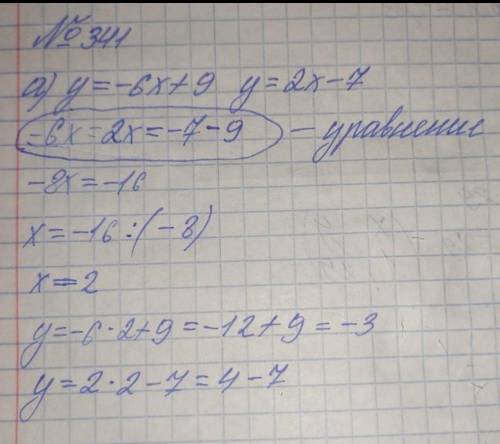 № 341
а) y=-6x+9 y=2x-7
-6x=2x=-7-9 - уравнение
-8x=-16
x=-16:(-8)
x=2
y=-6·2+9=-12+9=-3
y=2·2-7=4-7